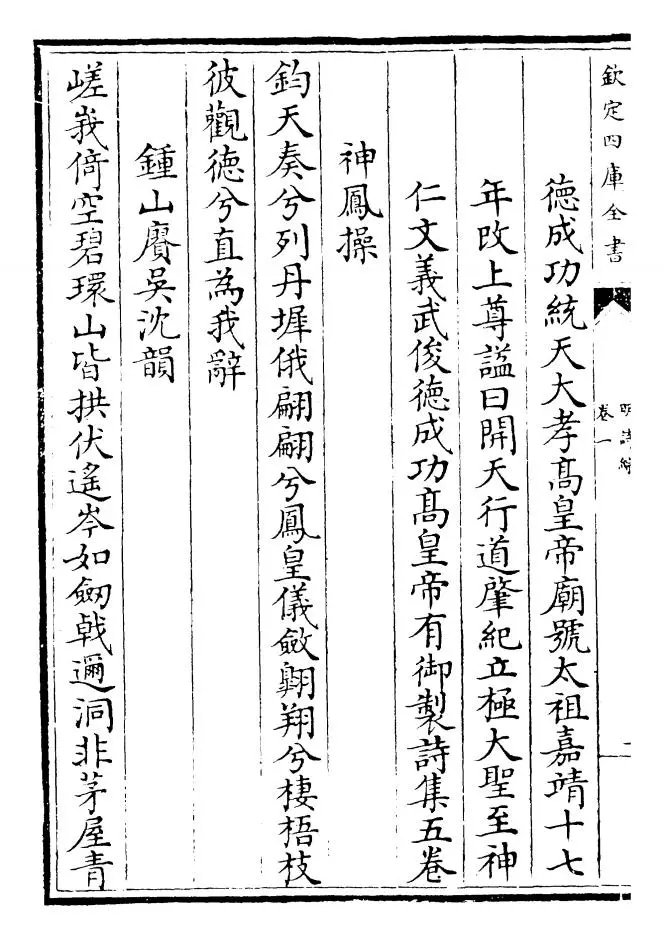 欽定四庫全書
明詩綜
卷一
德成功統天大孝髙皇帝廟號太祖嘉靖十七
年改上尊諡曰開天行道肇紀立極大聖至神
仁文義武俊德成功髙皇帝有御製詩集五卷
神鳳操
鈞天奏兮列丹墀俄翩翩兮鳳皇儀斂翺翔兮棲梧枝
彼觀徳兮直為我辭
鍾山賡吳沈韻
嵯峩倚空碧環山皆拱伏遙岑如劒戟邇洞非茅屋青